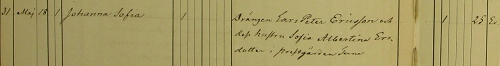 31 Maj 18 1 Johanna Sofia 1 Drängen Lars Peter Ericsson och 1 25
dess hustru Sofia Albertina Ers-
dotter i prestgården